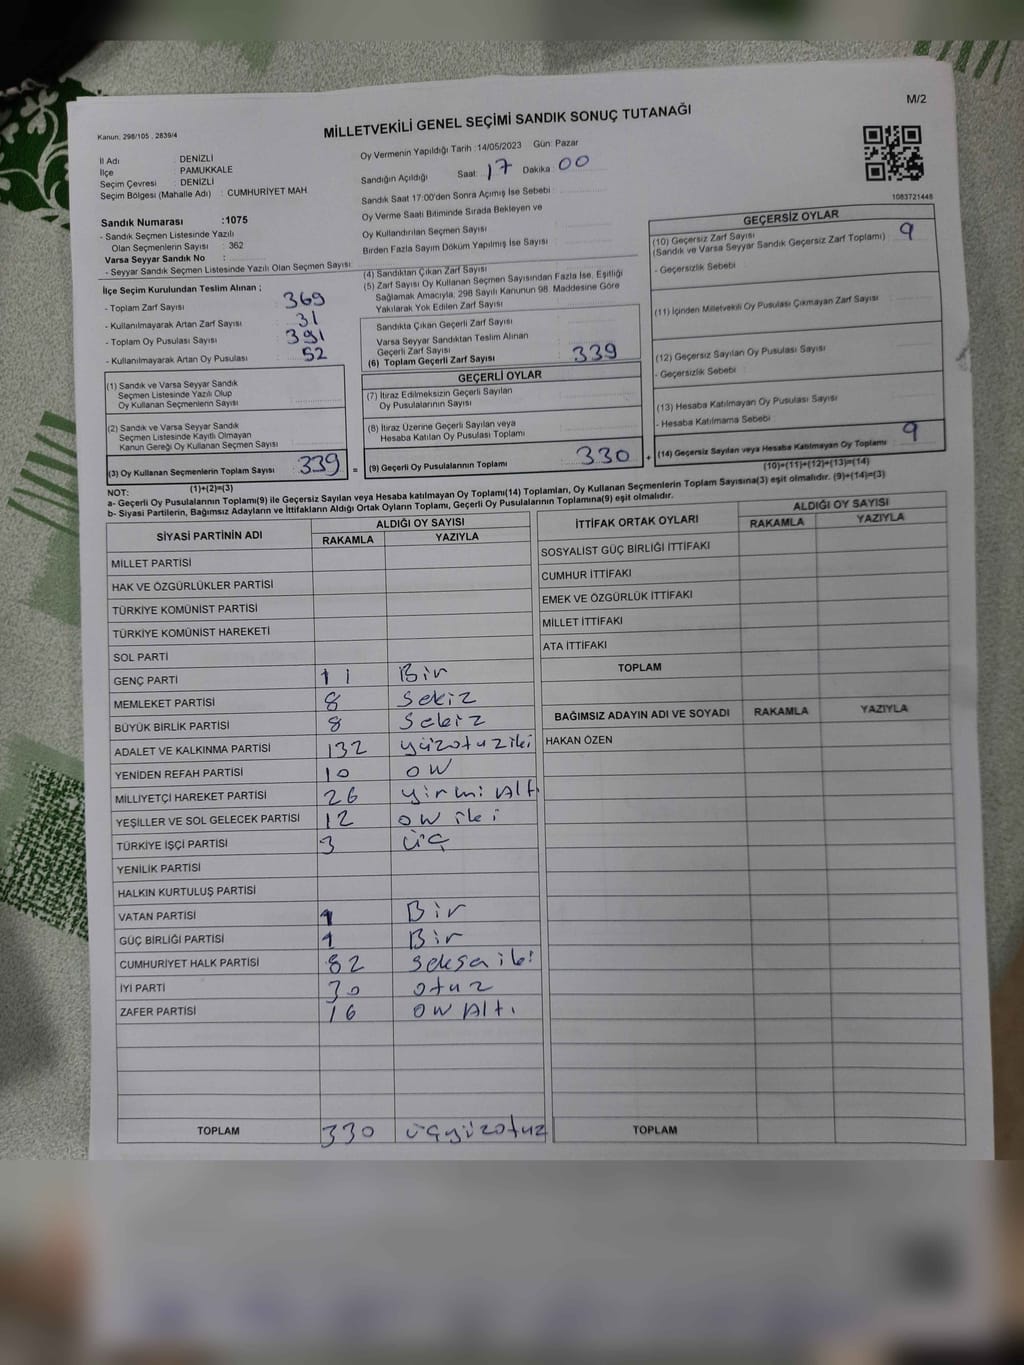 M/2
Kanun, 298/105 , 2839/4
MİLLETVEKİLİ GENEL SEÇİMİ SANDIK SONUÇ TUTANAĞI
1083721448
İl Adı : DENİZLİ
İlçe : PAMUKKALE
Seçim Çevresi : DENİZLİ
Seçim Bölgesi (Mahalle Adı) : CUMHURİYET MAH
Sandık Numarası :1075
- Sandık Seçmen Listesinde Yazılı
Olan Seçmenlerin Sayısı : 362
Varsa Seyyar Sandık No :
- Seyyar Sandık Seçmen Listesinde Yazılı Olan Seçmen Sayısı:
İlçe Seçim Kurulundan Teslim Alınan ;
- Toplam Zarf Sayısı : 369
- Kullanılmayarak Artan Zarf Sayısı : 31
- Toplam Oy Pusulası Sayısı : 391
- Kullanılmayarak Artan Oy Pusulası : 52
(1) Sandık ve Varsa Seyyar Sandık
Seçmen Listesinde Yazılı Olup
Oy Kullanan Seçmenlerin Sayısı
(2) Sandık ve Varsa Seyyar Sandık
Seçmen Listesinde Kayıtlı Olmayan
Kanun Gereği Oy Kullanan Seçmen Sayısı
(3) Oy Kullanan Seçmenlerin Toplam Sayısı 339 =
(1)+(2)=(3)
Oy Vermenin Yapıldığı Tarih :14/05/2023 Gün: Pazar
Sandığın Açıldığı Saat: 17 Dakika : 00
Sandık Saat 17:00'den Sonra Açımış İse Sebebi :
Oy Verme Saati Bitiminde Sırada Bekleyen ve
Oy Kullandırılan Seçmen Sayısı :
Birden Fazla Sayım Döküm Yapılmış İse Sayısı :
(4) Sandıktan Çıkan Zarf Sayısı
(5) Zarf Sayısı Oy Kullanan Seçmen Sayısından Fazla İse, Eşitliği
Sağlamak Amacıyla, 298 Sayılı Kanunun 98. Maddesine Göre
Yakılarak Yok Edilen Zarf Sayısı
Sandıkta Çıkan Geçerli Zarf Sayısı
Varsa Seyyar Sandıktan Teslim Alınan
Geçerli Zarf Sayısı
(6) Toplam Geçerli Zarf Sayısı 339
GEÇERLİ OYLAR
(7) İtiraz Edilmeksizin Geçerli Sayılan
Oy Pusulalarının Sayısı
(8) İtiraz Üzerine Geçerli Sayılan veya
Hesaba Katılan Oy Pusulası Toplamı
(9) Geçerli Oy Pusulalarının Toplamı 330 +
GEÇERSİZ OYLAR
(10) Geçersiz Zarf Sayısı
(Sandık ve Varsa Seyyar Sandık Geçersiz Zarf Toplamı) 9
- Geçersizlik Sebebi
(11) İçinden Milletvekili Oy Pusulası Çıkmayan Zarf Sayısı
(12) Geçersiz Sayılan Oy Pusulası Sayısı
- Geçersizlik Sebebi :
(13) Hesaba Katılmayan Oy Pusulası Sayısı
- Hesaba Katılmama Sebebi
(14) Geçersiz Sayılan veya Hesaba Katılmayan Oy Toplamı 9
(10)+(11)+(12)+(13)=(14)
NOT:
a- Geçerli Oy Pusulalarının Toplamı(9) ile Geçersiz Sayılan veya Hesaba katılmayan Oy Toplamı(14) Toplamları, Oy Kullanan Seçmenlerin Toplam Sayısına(3) eşit olmalıdır. (9)+(14)=(3)
b- Siyasi Partilerin, Bağımsız Adayların ve İttifakların Aldığı Ortak Oyların Toplamı, Geçerli Oy Pusulalarının Toplamına(9) eşit olmalıdır.
SİYASİ PARTİNİN ADI ALDIĞI OY SAYISI
RAKAMLA YAZIYLA
MİLLET PARTİSİ
HAK VE ÖZGÜRLÜKLER PARTİSİ
TÜRKİYE KOMÜNİST PARTİSİ
TÜRKİYE KOMÜNİST HAREKETİ
SOL PARTİ
GENÇ PARTİ 1 1 Bir
MEMLEKET PARTİSİ 8 Sekiz
BÜYÜK BİRLİK PARTİSİ 8 Sekiz
ADALET VE KALKINMA PARTİSİ 132 yüzotuziki
YENİDEN REFAH PARTİSİ 10 on
MİLLİYETÇİ HAREKET PARTİSİ 26 yirmi Altı
YEŞİLLER VE SOL GELECEK PARTİSİ 12 on iki
TÜRKİYE İŞÇİ PARTİSİ 3 üç
YENİLİK PARTİSİ
HALKIN KURTULUŞ PARTİSİ
VATAN PARTİSİ 1 Bir
GÜÇ BİRLİĞİ PARTİSİ 1 Bir
CUMHURİYET HALK PARTİSİ 82 seksaiki
İYİ PARTİ 30 otuz
ZAFER PARTİSİ 16 on Altı
TOPLAM 330 üçyüzotuz
İTTİFAK ORTAK OYLARI ALDIĞI OY SAYISI
RAKAMLA YAZIYLA
SOSYALİST GÜÇ BİRLİĞİ İTTİFAKI
CUMHUR İTTİFAKI
EMEK VE ÖZGÜRLÜK İTTİFAKI
MİLLET İTTİFAKI
ATA İTTİFAKI
TOPLAM
BAĞIMSIZ ADAYIN ADI VE SOYADI RAKAMLA YAZIYLA
HAKAN ÖZEN
TOPLAM